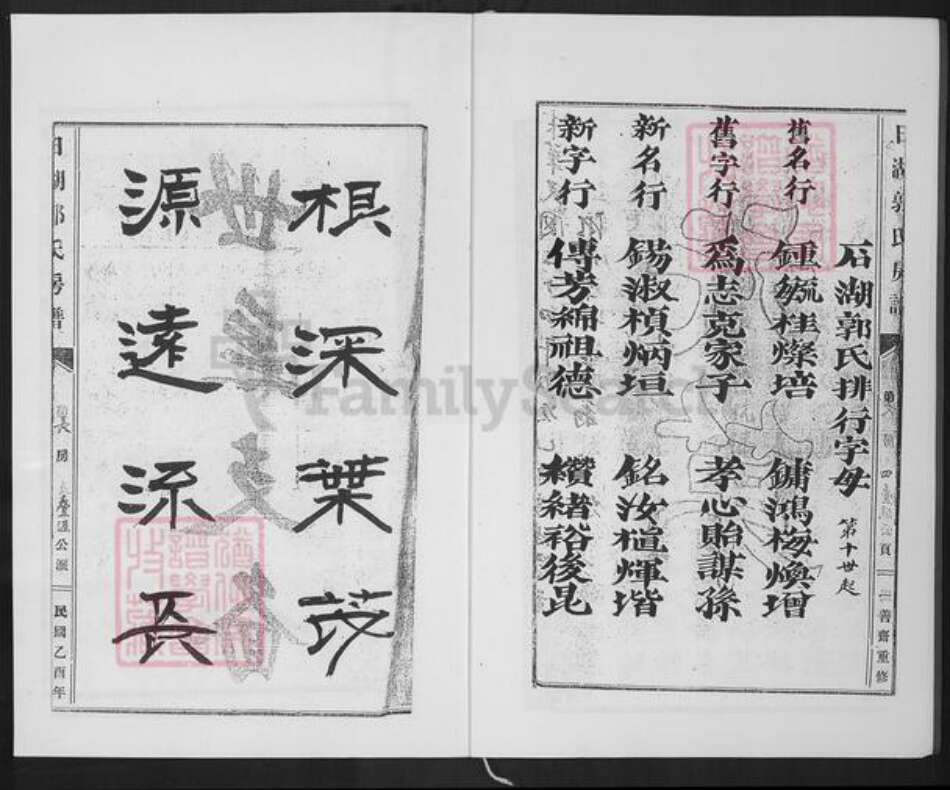 石湖郭氏排行字母 第十世起
舊名行 鍾毓桂燦培 鏞鴻梅煥增
舊字行 為志克家子 孝心貽謀孫
新名行 錫淑楨炳垣 銘汝楦輝堦
新字行 傳芳綿祖德 纘緒裕後昆
善齋重修
根深葉茂
源遠流長
湖郭氏房譜
長房
公派
民國乙酉年
FamilySearch